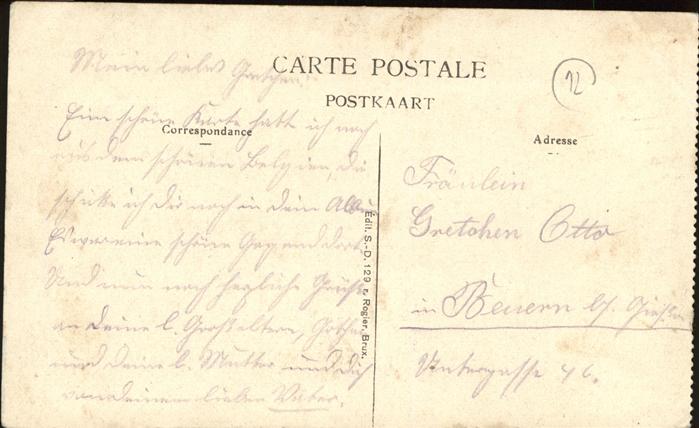 CARTE POSTALE
POSTKAART
12
Correspondance
Adresse
Mein liebes Gretchen!
Eine schöne Karte hatte ich noch
aus dem schönen Belgien, die
schicke ich dir noch in dein Album
Es war eine schöne Gegend dort.
Und nun noch herzliche Grüße
an deine l. Großeltern,
und deine l. Mutter und dich
von deinem lieben Vater.
Édit. S.-D. 129 r. Rogier, Brux.
Fräulein
Gretchen Otto
in Beuern b/. Gießen
Untergasse 46.